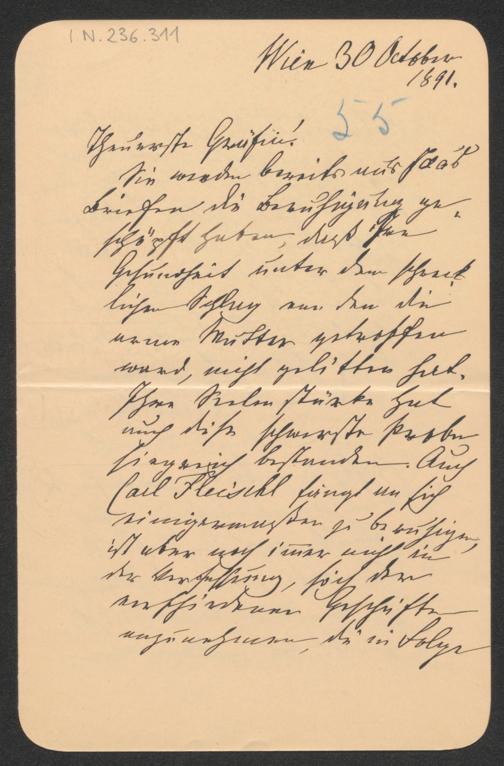 I.N. 236.311
Wien 30 October
1891.
55
Theuerste Gräfin!
Sie werden bereits aus Idas
Briefen die Beruhigung ge-
schöpft haben, daß ihre
Gesundheit unter dem schreck-
lichen Schlag von dem die
arme Mutter getroffen
ward, nicht gelitten hat.
Ihre Seelenstärke hat
auch diese schwerste Probe
siegreich bestanden. Auch
Carl Fleischl fängt an sich
einigermaßen zu beruhigen,
ist aber noch immer nicht in
der Verfassung, sich der
verschiedenen Geschäfte
anzunehmen, die in Folge